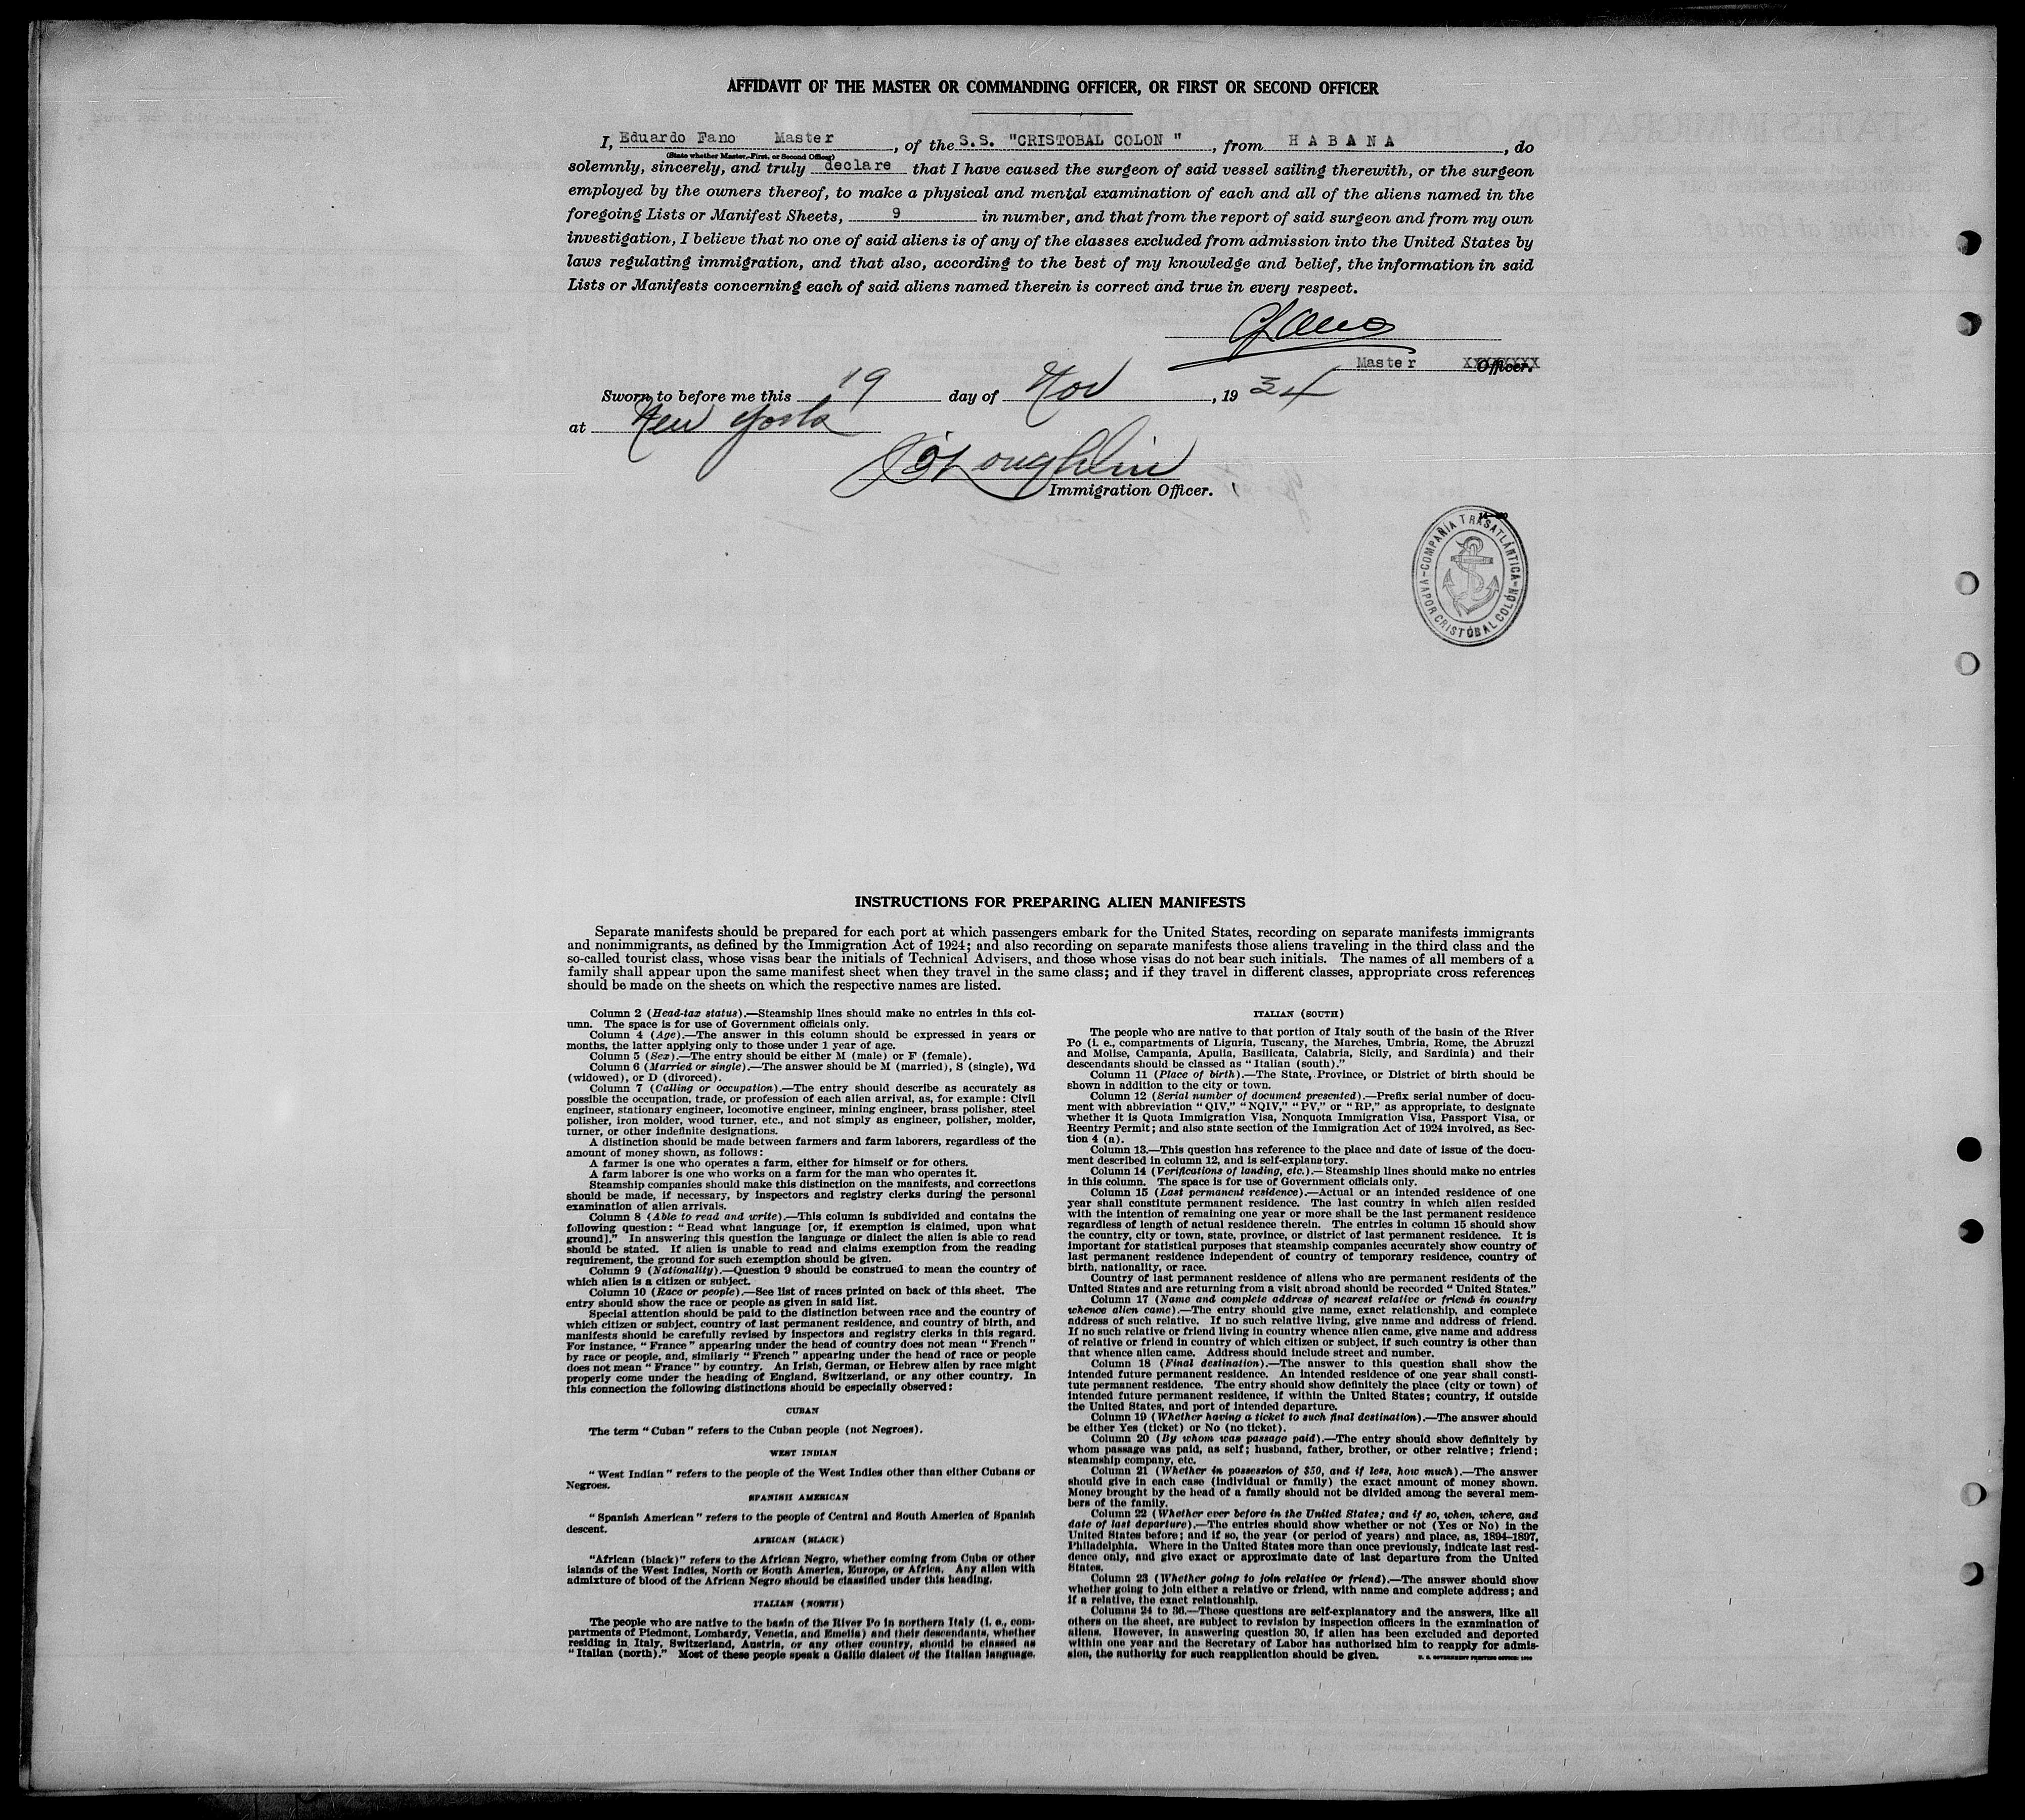 AFFIDAVIT OF THE MASTER OR COMMANDING OFFICER, OR FIRST OR SECOND OFFICER
I, Eduardo Fano Master, of the S.S. "CRISTOBAL COLON", from HABANA, do
(State whether Master, First, or Second Officer)
solemnly, sincerely, and truly declare that I have caused the surgeon of said vessel sailing therewith, or the surgeon
employed by the owners thereof, to make a physical and mental examination of each and all of the aliens named in the
foregoing Lists or Manifest Sheets, 9 in number, and that from the report of said surgeon and from my own
investigation, I believe that no one of said aliens is of any of the classes excluded from admission into the United States by
laws regulating immigration, and that also, according to the best of my knowledge and belief, the information in said
Lists or Manifests concerning each of said aliens named therein is correct and true in every respect.
Master XXXXXXXX Officer.
Sworn to before me this 19 day of Nov, 1934
at New York
Immigration Officer.
COMPAÑIA TRASATLÁNTICA
VAPOR CRISTÓBAL COLÓN
INSTRUCTIONS FOR PREPARING ALIEN MANIFESTS
Separate manifests should be prepared for each port at which passengers embark for the United States, recording on separate manifests immigrants
and nonimmigrants, as defined by the Immigration Act of 1924; and also recording on separate manifests those aliens traveling in the third class and the
so-called tourist class, whose visas bear the initials of Technical Advisers, and those whose visas do not bear such initials. The names of all members of a
family shall appear upon the same manifest sheet when they travel in the same class; and if they travel in different classes, appropriate cross references
should be made on the sheets on which the respective names are listed.
Column 2 (Head-tax status).—Steamship lines should make no entries in this col-
umn. The space is for use of Government officials only.
Column 4 (Age).—The answer in this column should be expressed in years or
months, the latter applying only to those under 1 year of age.
Column 5 (Sex).—The entry should be either M (male) or F (female).
Column 6 (Married or single).—The answer should be M (married), S (single), Wd
(widowed), or D (divorced).
Column 7 (Calling or occupation).—The entry should describe as accurately as
possible the occupation, trade, or profession of each alien arrival, as, for example: Civil
engineer, stationary engineer, locomotive engineer, mining engineer, brass polisher, steel
polisher, iron molder, wood turner, etc., and not simply as engineer, polisher, molder,
turner, or other indefinite designations.
A distinction should be made between farmers and farm laborers, regardless of the
amount of money shown, as follows:
A farmer is one who operates a farm, either for himself or for others.
A farm laborer is one who works on a farm for the man who operates it.
Steamship companies should make this distinction on the manifests, and corrections
should be made, if necessary, by inspectors and registry clerks during the personal
examination of alien arrivals.
Column 8 (Able to read and write).—This column is subdivided and contains the
following question: "Read what language [or, if exemption is claimed, upon what
ground]." In answering this question the language or dialect the alien is able to read
should be stated. If alien is unable to read and claims exemption from the reading
requirement, the ground for such exemption should be given.
Column 9 (Nationality).—Question 9 should be construed to mean the country of
which alien is a citizen or subject.
Column 10 (Race or people).—See list of races printed on back of this sheet. The
entry should show the race or people as given in said list.
Special attention should be paid to the distinction between race and the country of
which citizen or subject, country of last permanent residence, and country of birth, and
manifests should be carefully revised by inspectors and registry clerks in this regard.
For instance, "France" appearing under the head of country does not mean "French"
by race or people, and, similarly "French" appearing under the head of race or people
does not mean "France" by country. An Irish, German, or Hebrew alien by race might
properly come under the heading of England, Switzerland, or any other country. In
this connection the following distinctions should be especially observed:
CUBAN
The term "Cuban" refers to the Cuban people (not Negroes).
WEST INDIAN
"West Indian" refers to the people of the West Indies other than either Cubans or
Negroes.
SPANISH AMERICAN
"Spanish American" refers to the people of Central and South America of Spanish
descent.
AFRICAN (BLACK)
"African (black)" refers to the African Negro, whether coming from Cuba or other
islands of the West Indies, North or South America, Europe, or Africa. Any alien with
admixture of blood of the African Negro should be classified under this heading.
ITALIAN (NORTH)
The people who are native to the basin of the River Po in northern Italy (i. e., com-
partments of Piedmont, Lombardy, Venetia, and Emelia) and their descendants, whether
residing in Italy, Switzerland, Austria, or any other country, should be classed as
"Italian (north)." Most of these people speak a Gallic dialect of the Italian language.
ITALIAN (SOUTH)
The people who are native to that portion of Italy south of the basin of the River
Po (i. e., compartments of Liguria, Tuscany, the Marches, Umbria, Rome, the Abruzzi
and Molise, Campania, Apulia, Basilicata, Calabria, Sicily, and Sardinia) and their
descendants should be classed as "Italian (south)."
Column 11 (Place of birth).—The State, Province, or District of birth should be
shown in addition to the city or town.
Column 12 (Serial number of document presented).—Prefix serial number of docu-
ment with abbreviation "QIV," "NQIV," "PV," or "RP," as appropriate, to designate
whether it is Quota Immigration Visa, Nonquota Immigration Visa, Passport Visa, or
Reentry Permit; and also state section of the Immigration Act of 1924 involved, as Sec-
tion 4 (a).
Column 13.—This question has reference to the place and date of issue of the docu-
ment described in column 12, and is self-explanatory.
Column 14 (Verifications of landing, etc.).—Steamship lines should make no entries
in this column. The space is for use of Government officials only.
Column 15 (Last permanent residence).—Actual or an intended residence of one
year shall constitute permanent residence. The last country in which alien resided
with the intention of remaining one year or more shall be the last permanent residence
regardless of length of actual residence therein. The entries in column 15 should show
the country, city or town, state, province, or district of last permanent residence. It is
important for statistical purposes that steamship companies accurately show country of
last permanent residence independent of country of temporary residence, country of
birth, nationality, or race.
Country of last permanent residence of aliens who are permanent residents of the
United States and are returning from a visit abroad should be recorded "United States."
Column 17 (Name and complete address of nearest relative or friend in country
whence alien came).—The entry should give name, exact relationship, and complete
address of such relative. If no such relative living, give name and address of friend.
If no such relative or friend living in country whence alien came, give name and address
of relative or friend in country of which citizen or subject, if such country is other than
that whence alien came. Address should include street and number.
Column 18 (Final destination).—The answer to this question shall show the
intended future permanent residence. An intended residence of one year shall consti-
tute permanent residence. The entry should show definitely the place (city or town) of
intended future permanent residence, if within the United States; country, if outside
the United States, and port of intended departure.
Column 19 (Whether having a ticket to such final destination).—The answer should
be either Yes (ticket) or No (no ticket).
Column 20 (By whom was passage paid).—The entry should show definitely by
whom passage was paid, as self; husband, father, brother, or other relative; friend;
steamship company, etc.
Column 21 (Whether in possession of $50, and if less, how much).—The answer
should give in each case (individual or family) the exact amount of money shown.
Money brought by the head of a family should not be divided among the several mem-
bers of the family.
Column 22 (Whether ever before in the United States; and if so, when, where, and
date of last departure).—The entries should show whether or not (Yes or No) in the
United States before; and if so, the year (or period of years) and place, as, 1894-1897,
Philadelphia. Where in the United States more than once previously, indicate last resi-
dence only, and give exact or approximate date of last departure from the United
States.
Column 23 (Whether going to join relative or friend).—The answer should show
whether going to join either a relative or friend, with name and complete address; and
if a relative, the exact relationship.
Columns 24 to 36.—These questions are self-explanatory and the answers, like all
others on the sheet, are subject to revision by inspection officers in the examination of
aliens. However, in answering question 30, if alien has been excluded and deported
within one year and the Secretary of Labor has authorized him to reapply for admis-
sion, the authority for such reapplication should be given.